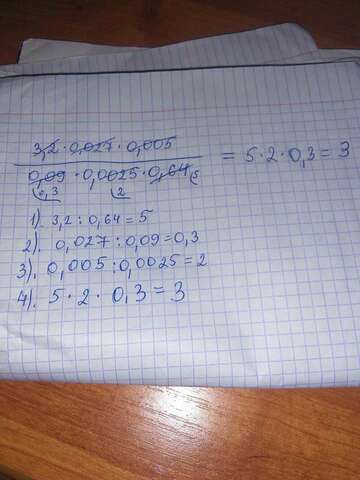 3,2 · 0,027 · 0,005
0,09 · 0,0025 · 0,64 = 5 · 2 · 0,3 = 3
0,3 2 5
1) 3,2 : 0,64 = 5
2). 0,027 : 0,09 = 0,3
3). 0,005 : 0,0025 = 2
4). 5 · 2 · 0,3 = 3